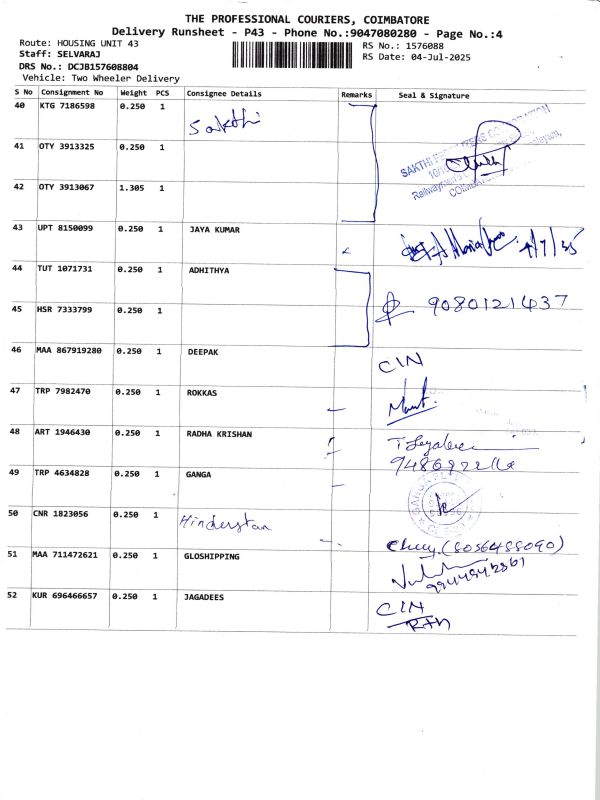 THE PROFESSIONAL COURIERS, COIMBATORE
Delivery Runsheet - P43 - Phone No.:9047080280 - Page No.:4
Route: HOUSING UNIT 43
RS No.: 1576088
Staff: SELVARAJ
RS Date: 04-Jul-2025
DRS No.: DCJB157608804
Vehicle: Two Wheeler Delivery
S No Consignment No Weight PCS Consignee Details Remarks Seal & Signature
40 KTG 7186598 0.250 1 Sakthi
41 OTY 3913325 0.250 1
42 OTY 3913067 1.305 1
43 UPT 8150099 0.250 1 JAYA KUMAR
44 TUT 1071731 0.250 1 ADHITHYA
45 HSR 7333799 0.250 1 9080121437
46 MAA 867919280 0.250 1 DEEPAK CIN
47 TRP 7982470 0.250 1 ROKKAS
48 ART 1946430 0.250 1 RADHA KRISHAN
49 TRP 4634828 0.250 1 GANGA
50 CNR 1823056 0.250 1 Hinderstan
(8056488090)
51 MAA 711472621 0.250 1 GLOSHIPPING
52 KUR 696466657 0.250 1 JAGADEES CIN